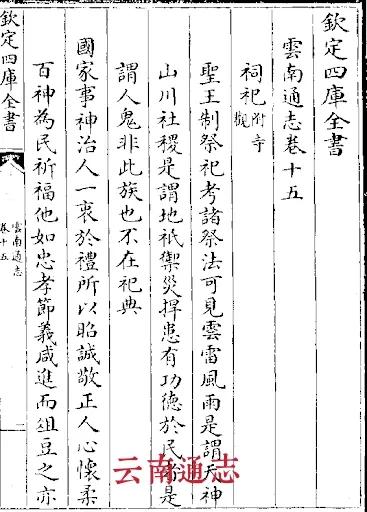 欽定四庫全書
雲南通志卷十五
祠祀附寺觀
聖王制祭祀考諸祭法可見雲雷風雨是謂天神
山川社稷是謂地祇禦災捍患有功德於民者是
謂人鬼非此族也不在祀典
國家事神治人一衷於禮所以昭誠敬正人心懷柔
百神為民祈福他如忠孝節義咸進而俎豆之亦
欽定四庫全書
雲南通志
卷十五
一
云南通志